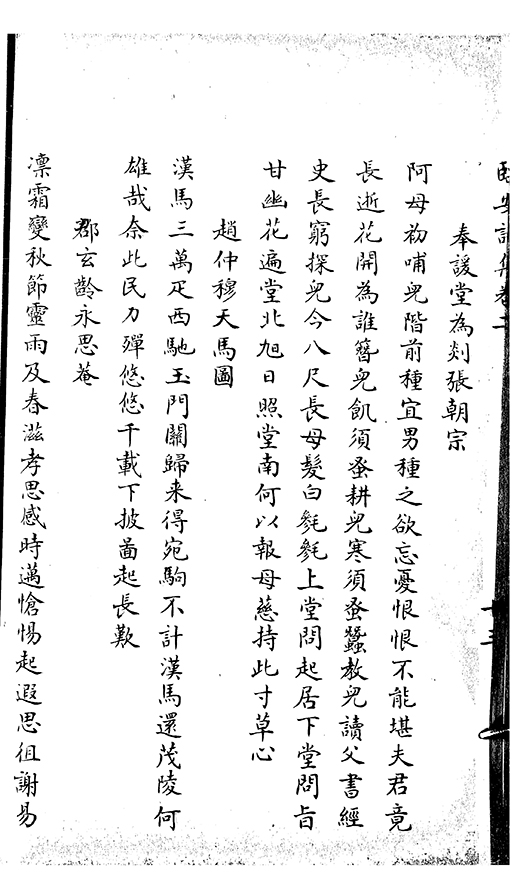 奉諼堂為剡張朝宗
阿母初哺兒階前種宜男種之欲忘憂恨恨不能堪夫君竟
長逝花開為誰簪兒飢須蚤耕兒寒須蚤蠶教兒讀父書經
史長窮探兒今八尺長母髮白毿毿上堂問起居下堂問旨
甘幽花遍堂北旭日照堂南何以報母慈持此寸草心
趙仲穆天馬圖
漢馬三萬疋西馳玉門關歸来得宛駒不計漢馬還茂陵何
雄哉奈此民力殫悠悠千載下披啚起長歎
郡玄齡永思菴
凛霜變秋節靈雨及春滋孝思感時邁愴惕起遐思徂謝易